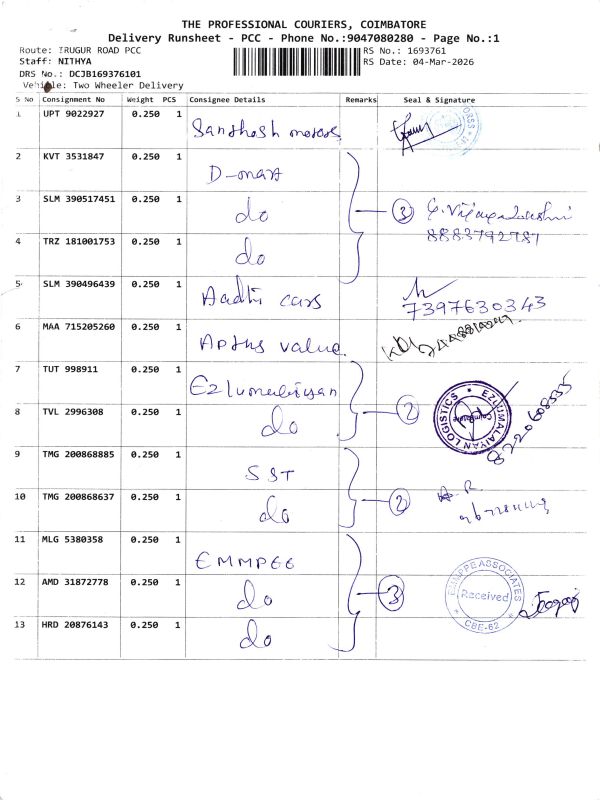 THE PROFESSIONAL COURIERS, COIMBATORE
Delivery Runsheet - PCC - Phone No.:9047080280 - Page No.:1
Route: IRUGUR ROAD PCC
RS No.: 1693761
Staff: NITHYA
RS Date: 04-Mar-2026
DRS No.: DCJB169376101
Vehicle: Two Wheeler Delivery
S No Consignment No Weight PCS Consignee Details Remarks Seal & Signature
1 UPT 9022927 0.250 1 Santhosh motors
2 KVT 3531847 0.250 1 D-mart
3 SLM 390517451 0.250 1 do 3 G. Vijayalakshmi
8883792787
4 TRZ 181001753 0.250 1 do
5 SLM 390496439 0.250 1 Aadhi cars 7397630343
6 MAA 715205260 0.250 1 Aptus value
7 TUT 998911 0.250 1 Ezlumalaiyan
8 TVL 2996308 0.250 1 do 2 EZLUMALAIYAN LOGISTICS Coimbatore
9 TMG 200868885 0.250 1 SST
10 TMG 200868637 0.250 1 do 2
11 MLG 5380358 0.250 1 EMMPEE
12 AMD 31872778 0.250 1 do 3 EMMPPE ASSOCIATES Received CBE-62
13 HRD 20876143 0.250 1 do